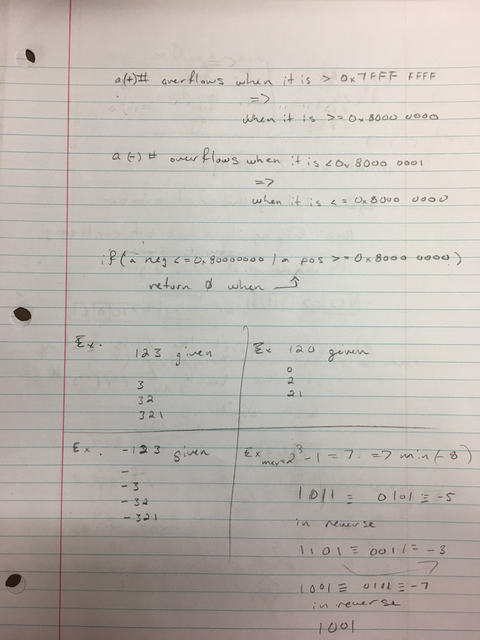 a (+) # overflows when it is > 0x7FFF FFFF
=>
when it is >= 0x8000 0000
a (-) # overflows when it is < 0x 8000 0001
=>
when it is <= 0x8000 0000
if ( a neg <= 0x80000000 / a pos >= 0x8000 0000 )
return 0 when
Ex.
123 given
3
32
321
Ex 120 given
0
2
21
Ex. -123 given
-
-3
-32
-321
Ex max=2^3 - 1 = 7 => min (-8)
1011 ≡ 0101 ≡ -5
in reverse
1101 ≡ 0011 = -3
1001 ≡ 0111 ≡ -7
in reverse
1001